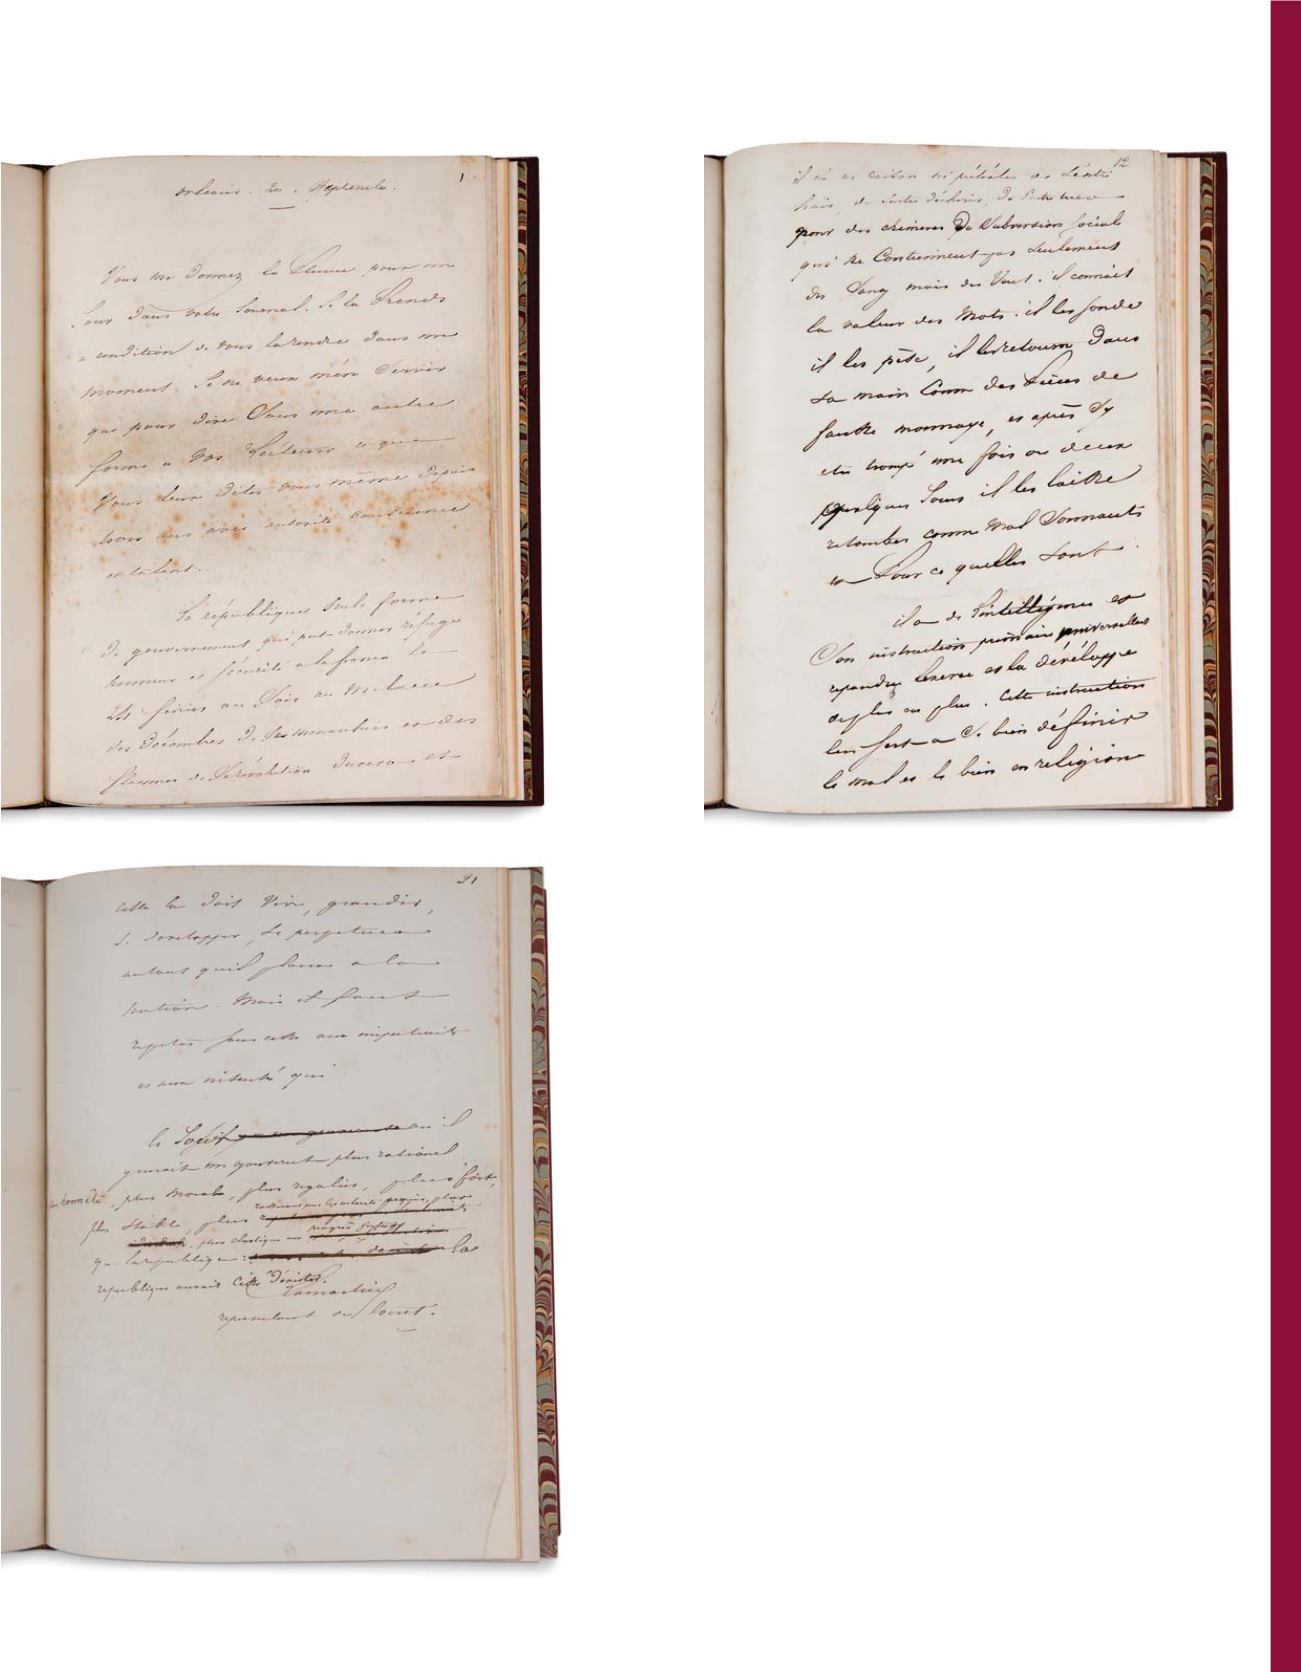 1
Orléans. 20. Septembre.
Vous me donnez la Plume pour un
Jour dans votre Journal. Je la Prends
a condition de vous la rendre dans un
moment. Je ne veux m'en Servir
que pour dire Sous une autre
forme a vos Lecteurs ce que
Vous leur Dites vous même Depuis
trois ans avec autorité conscience
et talent.
La république Seule forme
De gouvernement qui put donner réfuge
honneur et Sécurité a la france le
24 février au Soir au Milieu
des Décombres De Ses monarchies et des
flammes de Sa révolution
12
il n'a ni raison ni
haïr, de
pour des chimeres De Subversion Sociale
qui ne Contiennent pas Seulement
du Sang mais du Vent. il connait
la valeur des Mots. il les Sonde
il les pèse, il les retourne Dans
Sa main Comme des Pièces de
fausse monnaye, et après S'y
etre trompé une fois ou deux
Quelques Jours il les laisse
retomber comme Mal Sonnants
et Pour ce quelles Sont.
il a de l'intelligence et
Son instruction primaire universelle
repandue l'exerce et la développe
de plus en plus. Cette instruction
lui sert a Se bien définir
le mal et le bien en religion
21
elle Doit Vivre, grandir,
Se Developper, Se perpetuer
autant quil plaira a la
nation. Mais il faut
repeter sans cesse aux impatients
et aux qui
le où il
y aurait un gouvernt plus rationel
plus honnête, plus Moral, plus régulier, plus fort,
plus Stable, plus
plus élastique au progrès
que la republique: la
republique aurait Cette
Lamartine
representant du loiret.